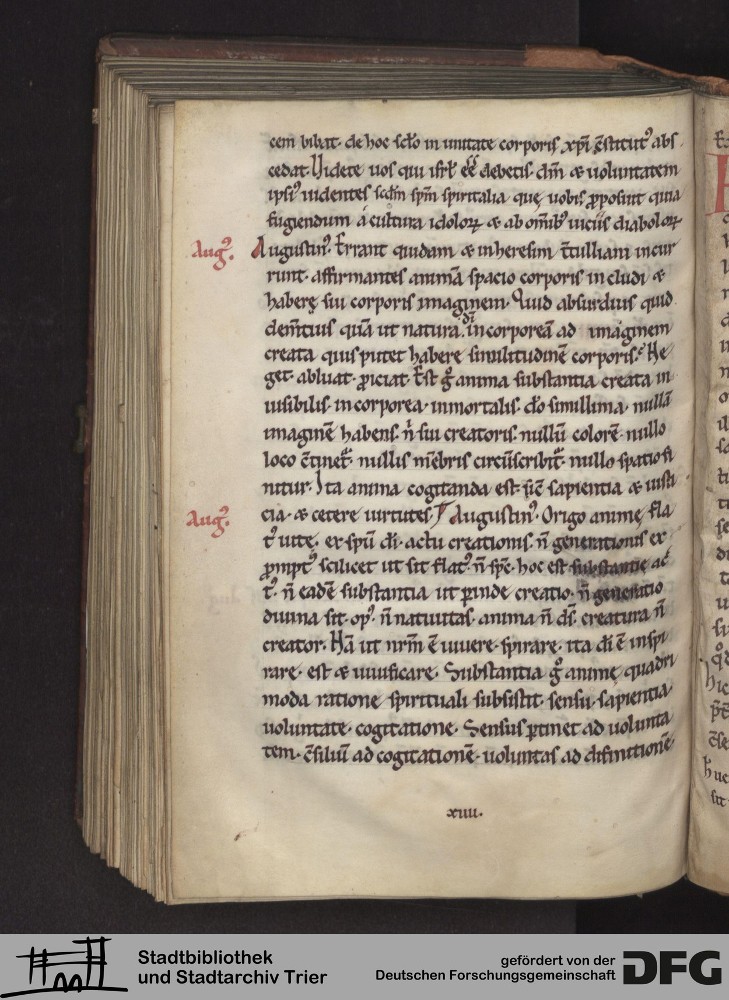 cem bibat. de hoc sc̄lo in unitate corporis xp̄i c̄stitut᷒ abs
cedat. Videte uos qui isrl̄ eē debetis. dm̄ & uoluntatem
ipsi᷒ uidentes scd̄m sp̄m spiritalia quę uobis ꝓposuit quia
fugiendum á cultura idoloꝝ & ab om̄ib᷒ uiciis diaboloꝝ
Aug᷒.
Augustin᷒. Errant quidam & in heresim t̄tulliani incur
runt. affirmantes animā spacio corporis includi &
haberę sui corporis imaginem. Quid absurdius quid
dem̄tius quā ut natura di᷒ incorporeā ad imaginem
creata quis putet habere similitudinē corporis? Ne
get. abluat. ꝓiciat. Est g̊ anima substantia creata in
uisibilis. incorporea. inmortalis. do simillima. nullā
imaginē habens. n̄ sui creatoris. nullū colorē. nullo
loco c̄tinet᷒. nullis mēbris circūscribit᷒. nullo spatio fi
nitur. Ita anima cogitanda est. sic̄ sapientia & iusti
Aug᷒.
cia. & cetere uirtutes. Augustin᷒. Origo animę fla
t᷒ uitę. ex sp̄u di. actu creationis. n̄ generationis ex
prompt᷒ scilicet ut sit flat᷒. n̄ sp̄c. hoc est substantię ac
t᷒. n̄ eadē substantia ut ꝑinde creatio. n̄ generatio
diuina sit. op᷒. n̄ natiuitas. anima n̄ ds̄. creatura n̄
creator. Nā ut nr̄m ē uiuere. spirare. ita di ē inspi
rare. est & uiuificare. Substantia g̊ animę quadri
moda ratione spirituali subsistit. sensu. sapientia.
uoluntate. cogitatione. Sensus ꝑtinet ad uolunta
tem. c̄siliū ad cogitationē. uoluntas ad difinitionē.
xiiii.
Stadtbibliothek
und Stadtarchiv Trier
gefördert von der
Deutschen Forschungsgemeinschaft
DFG